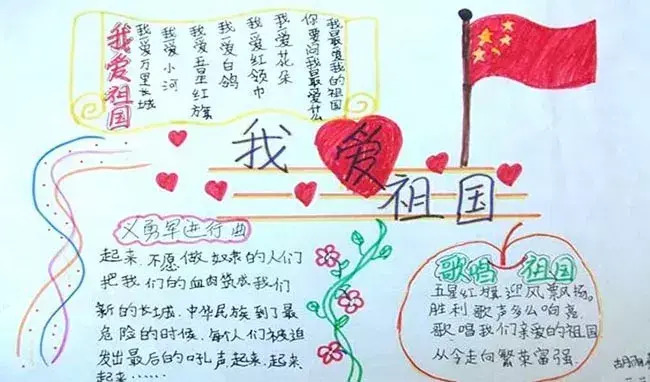 我爱祖国
我爱万里长城
我爱小河
我爱五星红旗
我爱白鸽
我爱红领巾
我爱花朵
你要问我最爱什么
我最爱我的祖国
我爱祖国
义勇军进行曲
起来.不愿做奴隶的人们
把我们的血肉筑成我们
新的长城.中华民族到了最
危险的时候.每个人们被迫
发出最后的吼声.起来.起来
起来……
歌唱 祖国
五星红旗迎风飘扬。
胜利歌声多么响亮
歌唱我们亲爱的祖国
从今走向繁荣富强.